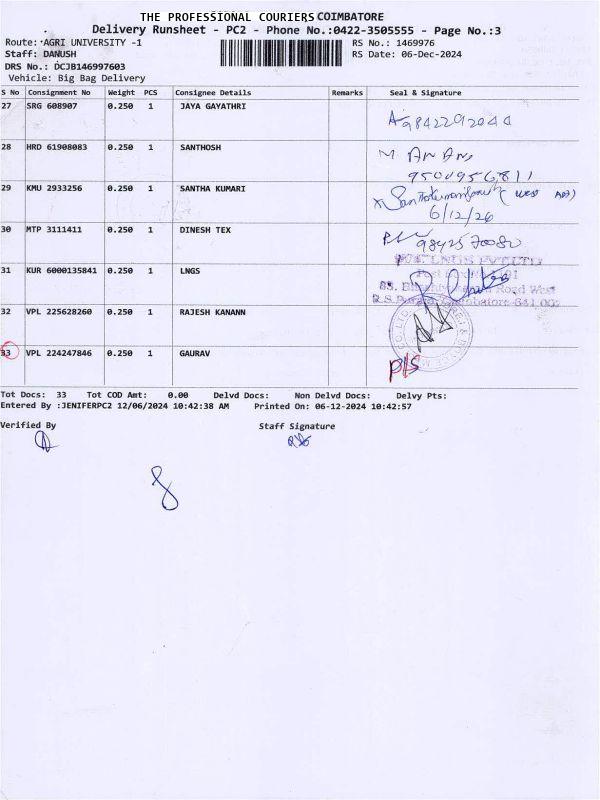 THE PROFESSIONAL COURIERS COIMBATORE
Delivery Runsheet - PC2 - Phone No.:0422-3505555 - Page No.:3
Route: AGRI UNIVERSITY -1 RS No.: 1469976
Staff: DANUSH RS Date: 06-Dec-2024
DRS No.: DCJB146997603
Vehicle: Big Bag Delivery
S No Consignment No Weight PCS Consignee Details Remarks Seal & Signature
27 SRG 608907 0.250 1 JAYA GAYATHRI
9842292044
28 HRD 61908083 0.250 1 SANTHOSH
M
9500956811
29 KMU 2933256 0.250 1 SANTHA KUMARI
6/12/24
30 MTP 3111411 0.250 1 DINESH TEX
31 KUR 6000135841 0.250 1 LNGS
LNGS PVT LTD
Road West
32 VPL 225628260 0.250 1 RAJESH KANANN
33 VPL 224247846 0.250 1 GAURAV
Tot Docs: 33 Tot COD Amt: 0.00 Delvd Docs: Non Delvd Docs: Delvy Pts:
Entered By :JENIFERPC2 12/06/2024 10:42:38 AM Printed On: 06-12-2024 10:42:57
Verified By Staff Signature